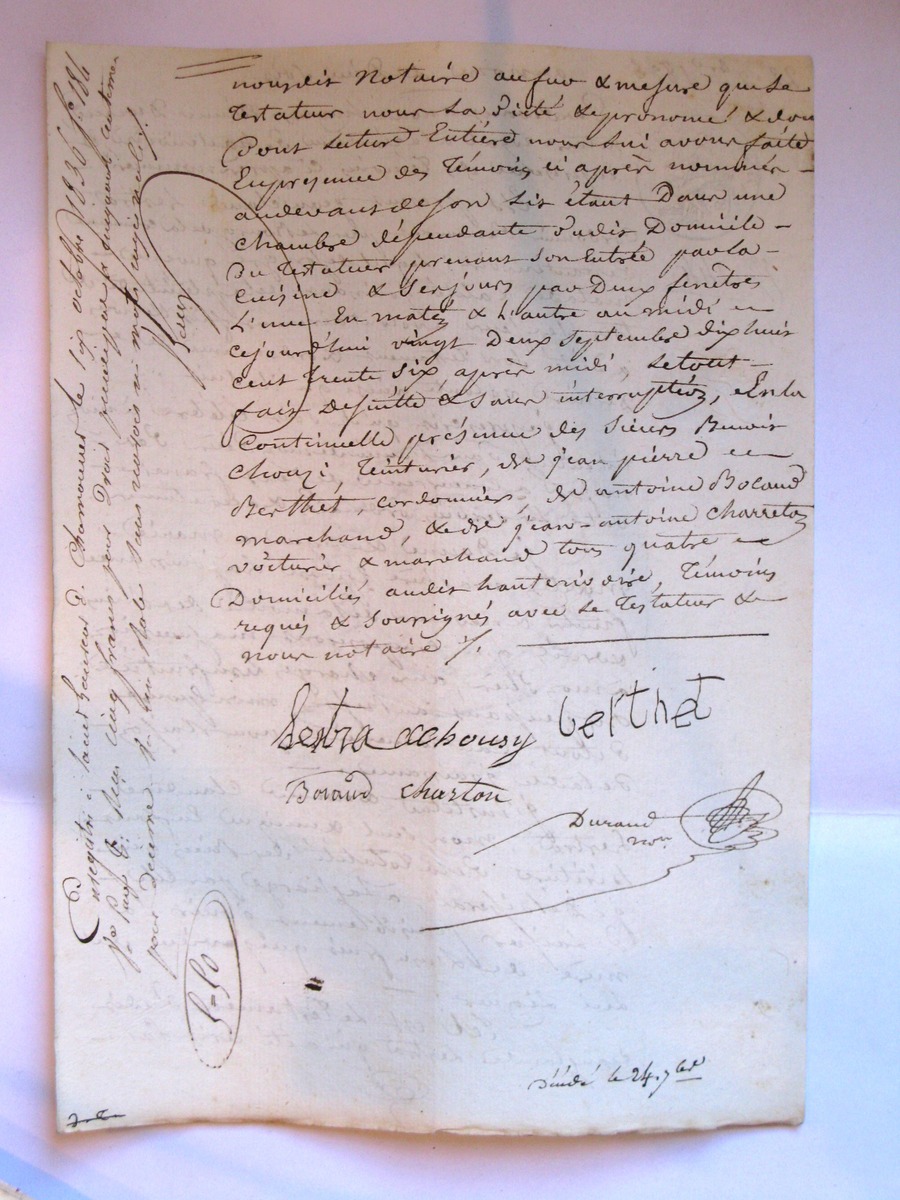 nousdit Notaire au fur & mesure que le
Testateur nous la Dicté & prononcé & dont
Dont lecture Entière nous lui avons faite
En présence des Témoins ci après nommés
au devant de son lit étant Dans une
chambre dépendante dudit Domicile
du Testateur prenant son Entrée par la
Cuisine & Ses jours par Deux fenêtres
L'une En matin & L'autre au midi
cejourd'hui vingt Deux septembre dix huit
cent trente six après midi, Le tout
fait de suitte & sans interruption, & En la
Continuelle présence des sieurs Benoit
Chouzi, Teinturier, de jean pierre
Berthet, cordonnier, de antoine Boraud
marchand, & de jean-antoine Charreton
voiturier & marchand tous quatre
Domiciliés audit hauterivoire, Témoins
requis & Soussignés avec le Testateur &
nous notaire /.
Lestra Chousy berthet
Boraud Charton
Durand
nore
Enregistré à Saint Laurent de Chamousset le six octobre 1836 fo 184
Reçu cinq francs pour Droit principal cinquante centimes
pour Decime
5=50
24. 7bre